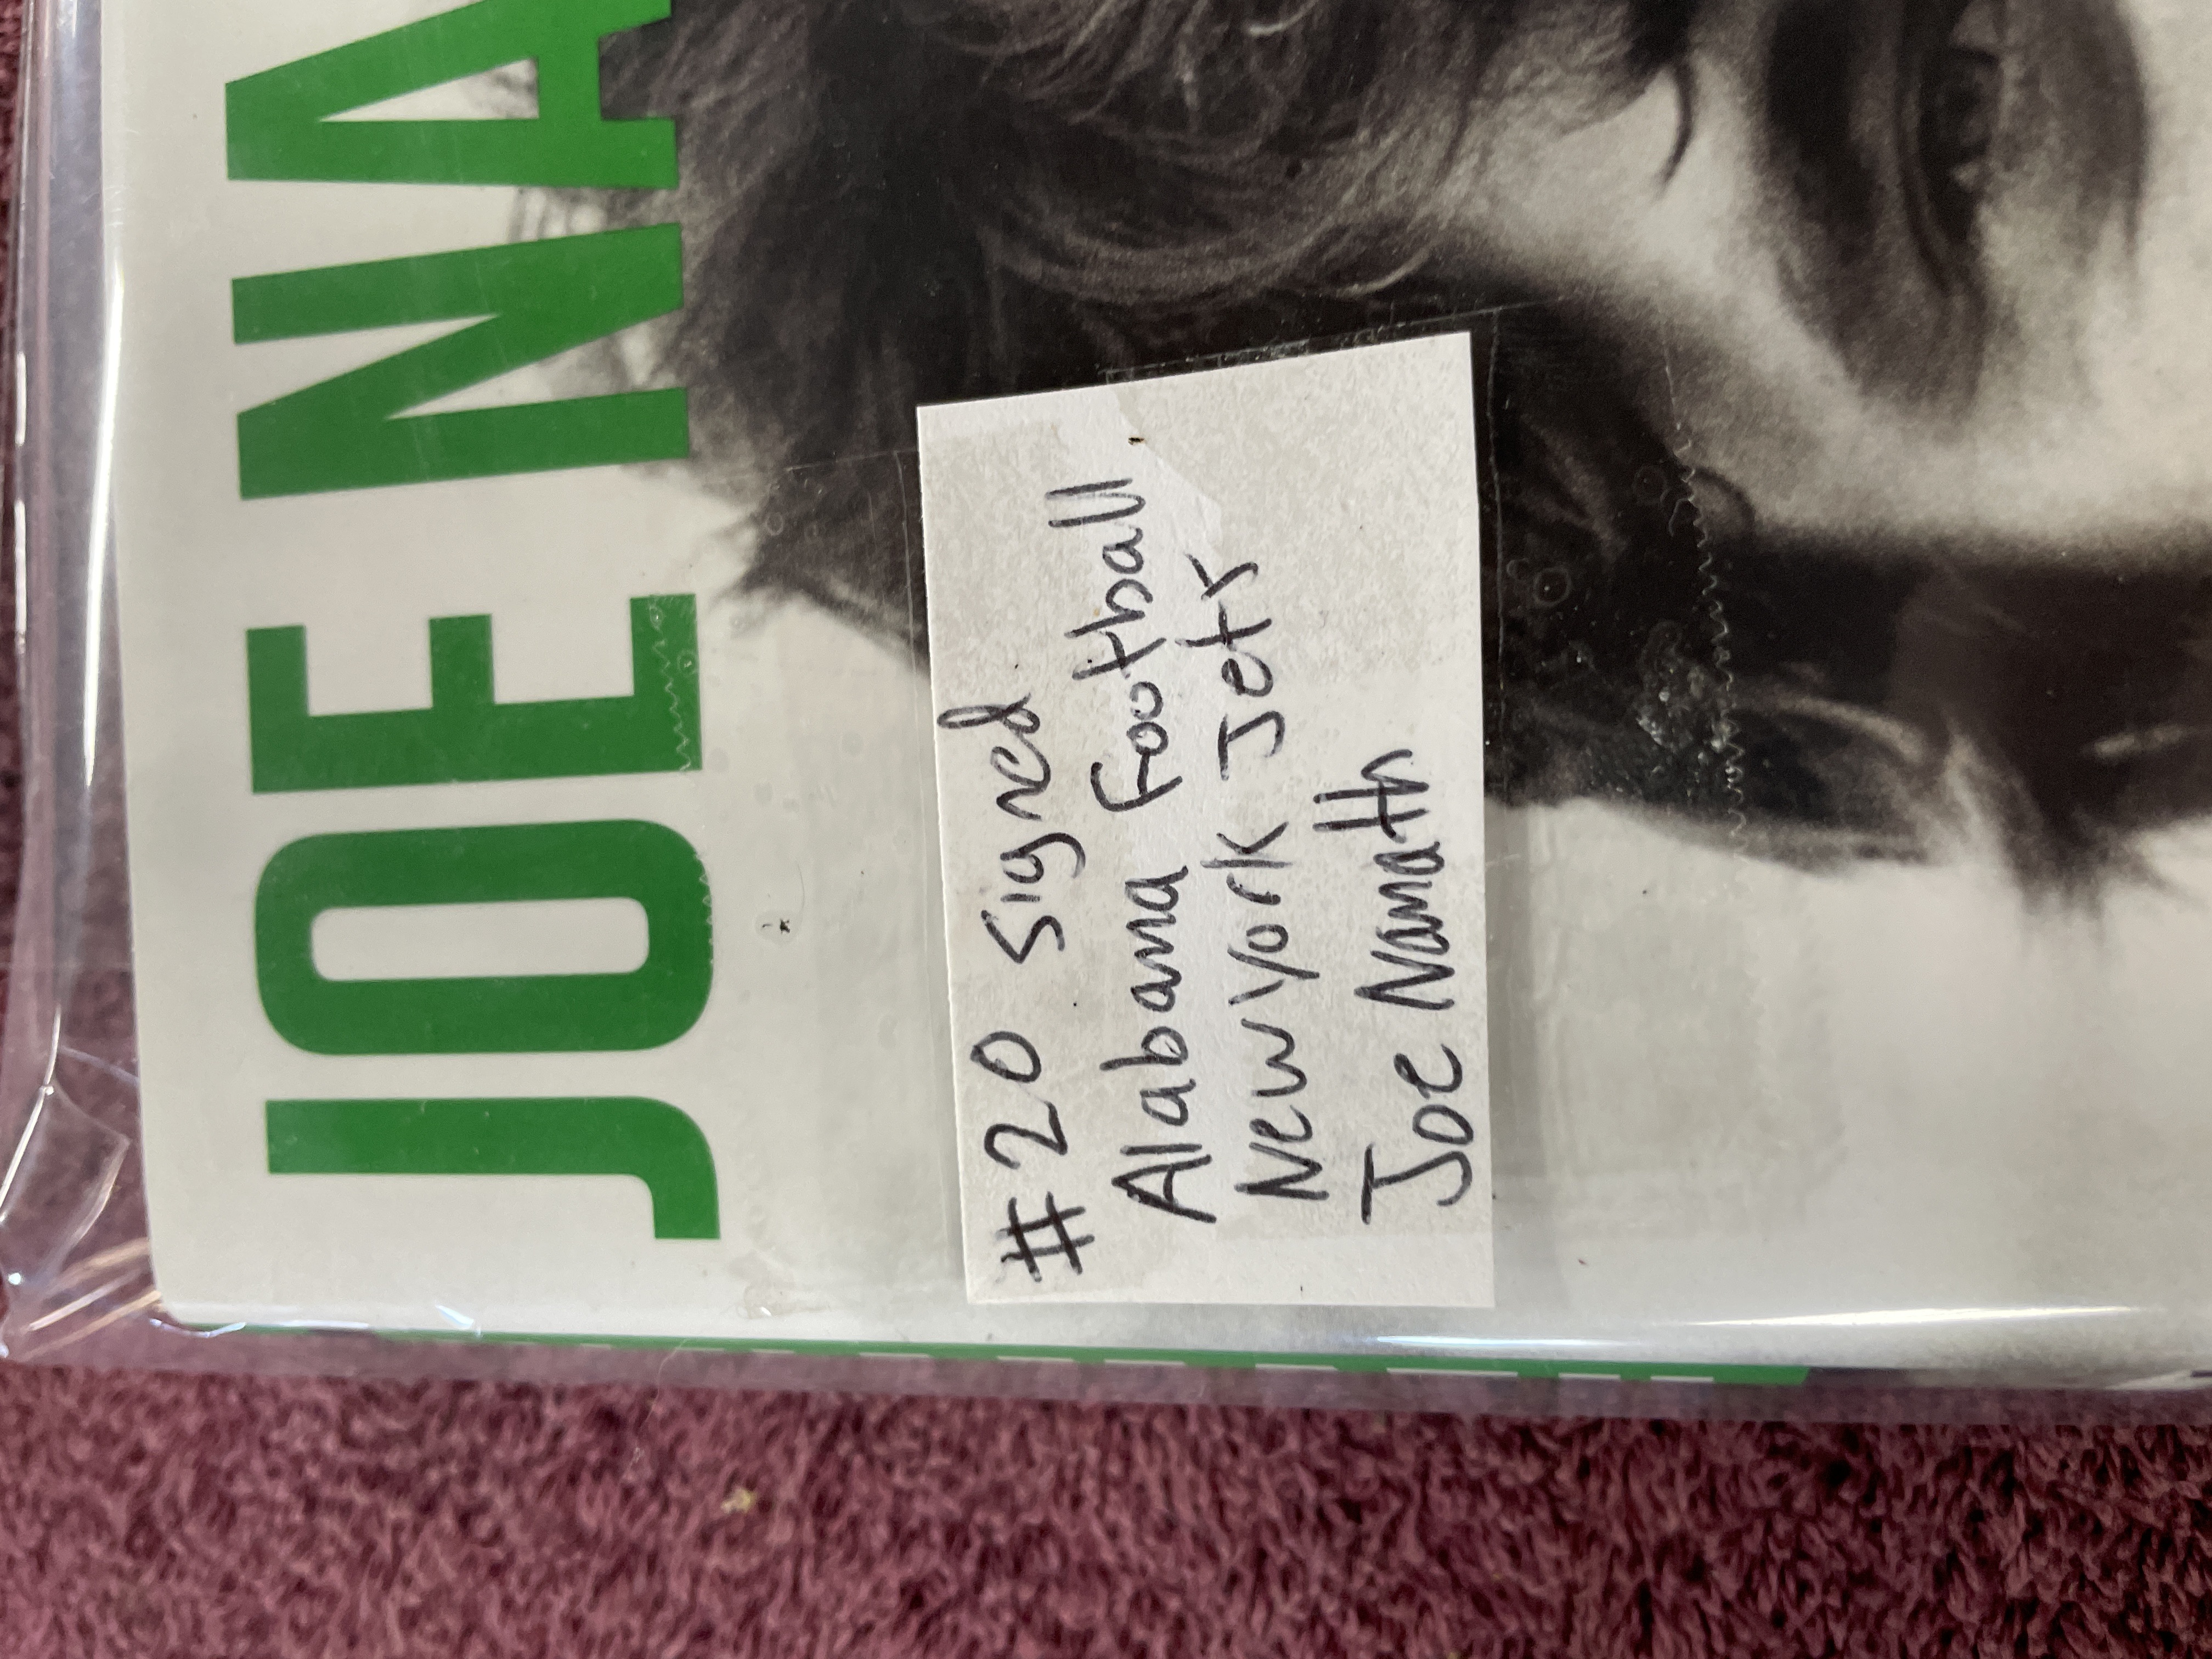 JOE NA
#20 Signed
Alabama Football
New York Jets
Joe Namath